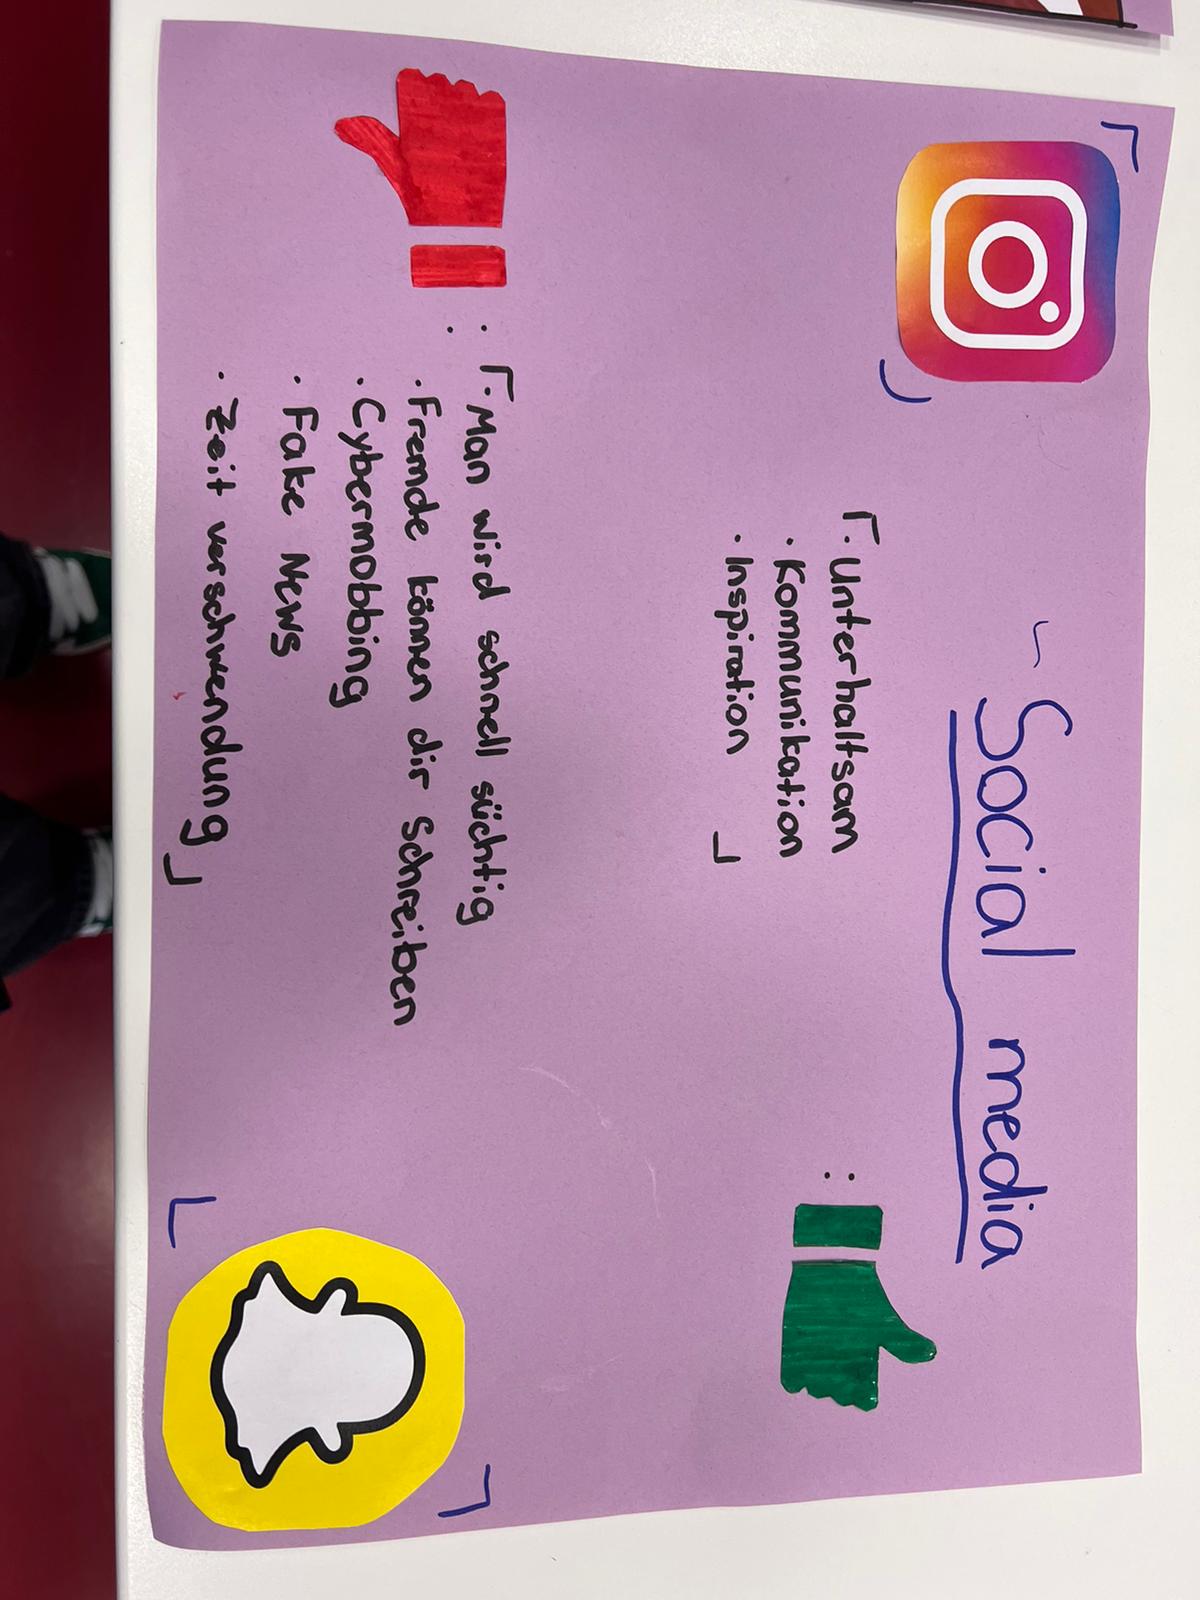 Social media
• Unterhaltsam
• Kommunikation
• Inspiration
:
:
• Man wird schnell süchtig
• Fremde können dir Schreiben
• Cybermobbing
• Fake News
• Zeit verschwendung